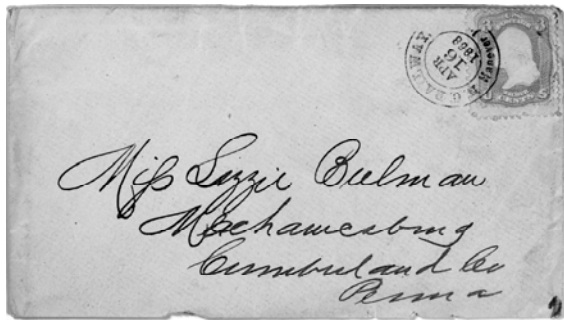 RAILWAY.
APR
16
1868
Hanover
Miss Lizzie Bulman
Mechanicsburg
Cumberland Co
Penna